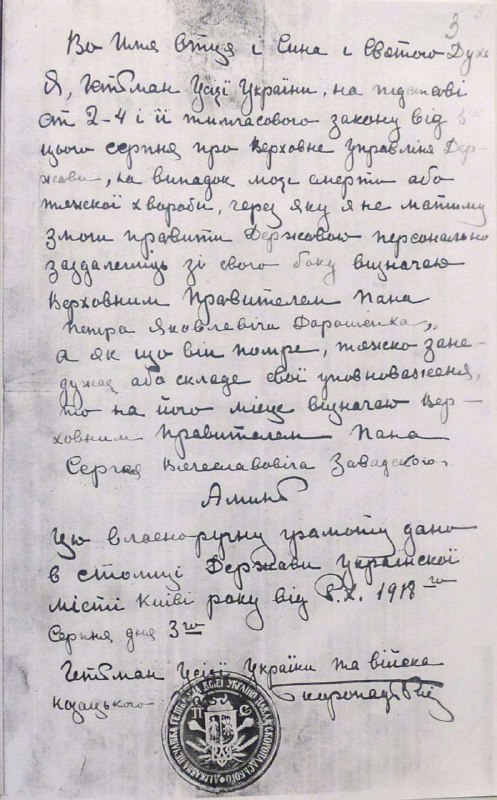 3
Во Имя Отця і Сина і Святого Духа
Я, Гетьман Усієї України, на підставі
ст 2-4 і її тимчасового закону від
цього серпня про Верховне Управліня Дер-
жави, на випадок моєї смерти або
тяжкої хвороби, через яку я не матиму
змоги правити Державою персонально
заздалегідь зі свого боку візначаю
Верховним Правителем Пана
Петра Яковлевіча Дорошенка,
а як що він помре, тяжко зане-
дужає або складе свої уповноваженя,
то на його місце візначаю Вер-
ховним Правителем Пана
Сергія Вячеславовіча Завадского
Амінь
Цю власноручну грамоту дано
в столиці Держави Української
місті Київі року від Р.Х. 1918 го
Серпня дня 3 го
Гетьман Усієї України та війска
Козацького Скоропадський